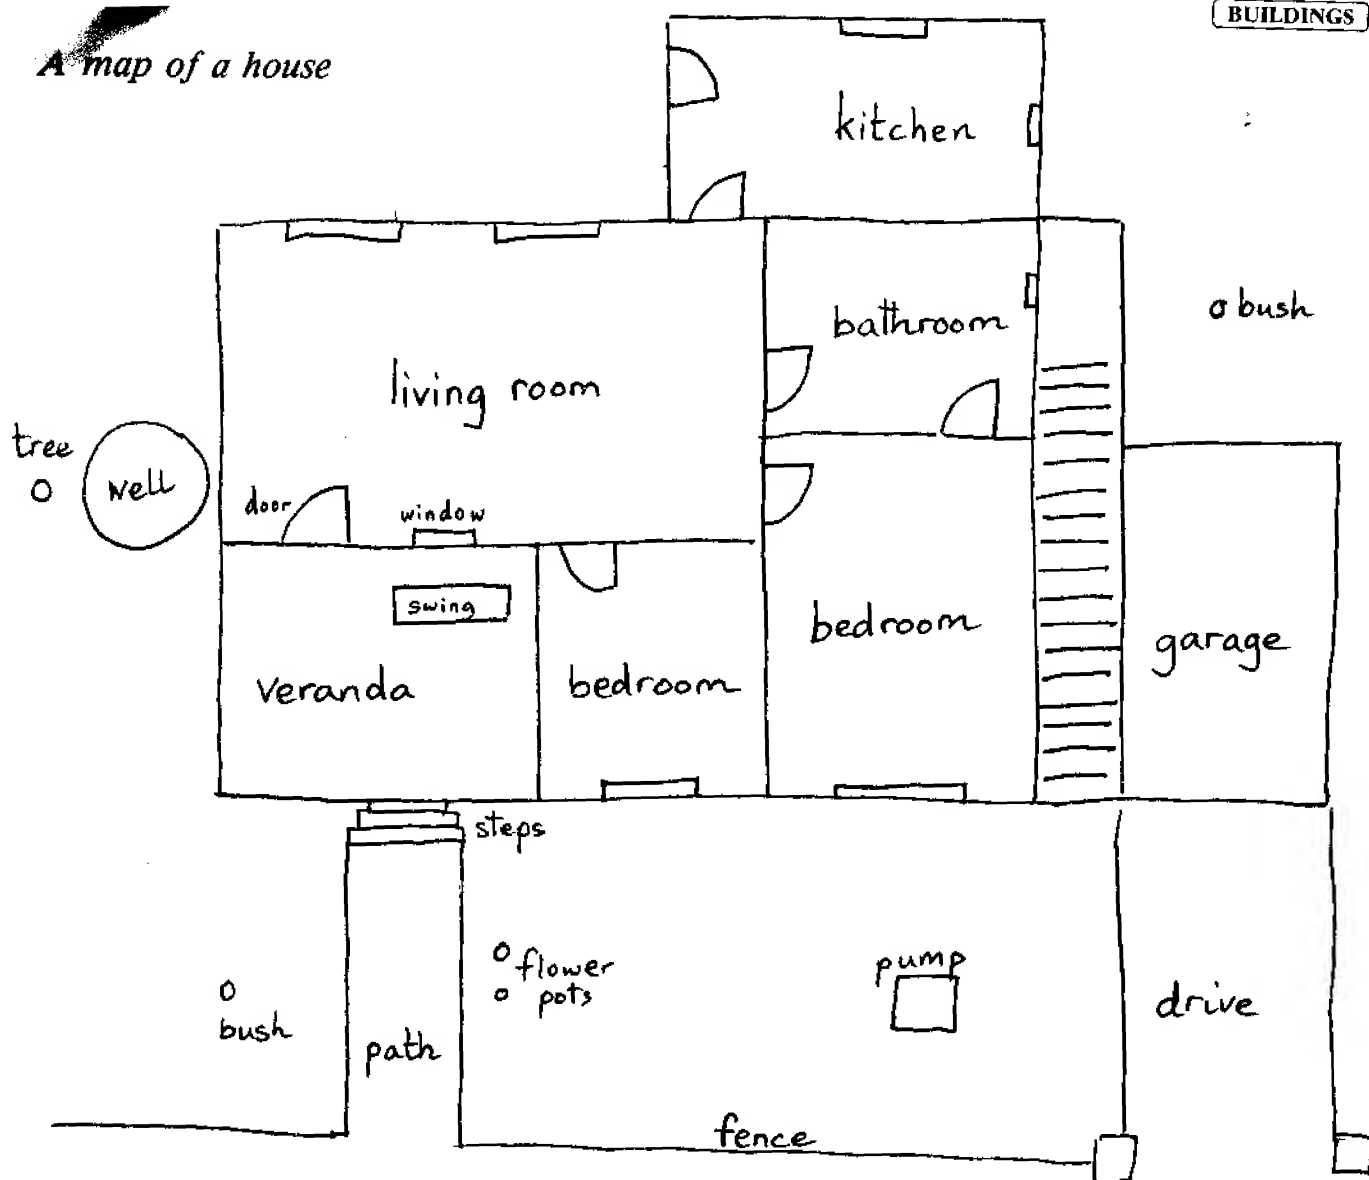 BUILDINGS
A map of a house
kitchen
bathroom
bush
living room
tree
well
door
window
swing
veranda
bedroom
bedroom
garage
steps
flower
pots
pump
bush
path
drive
fence